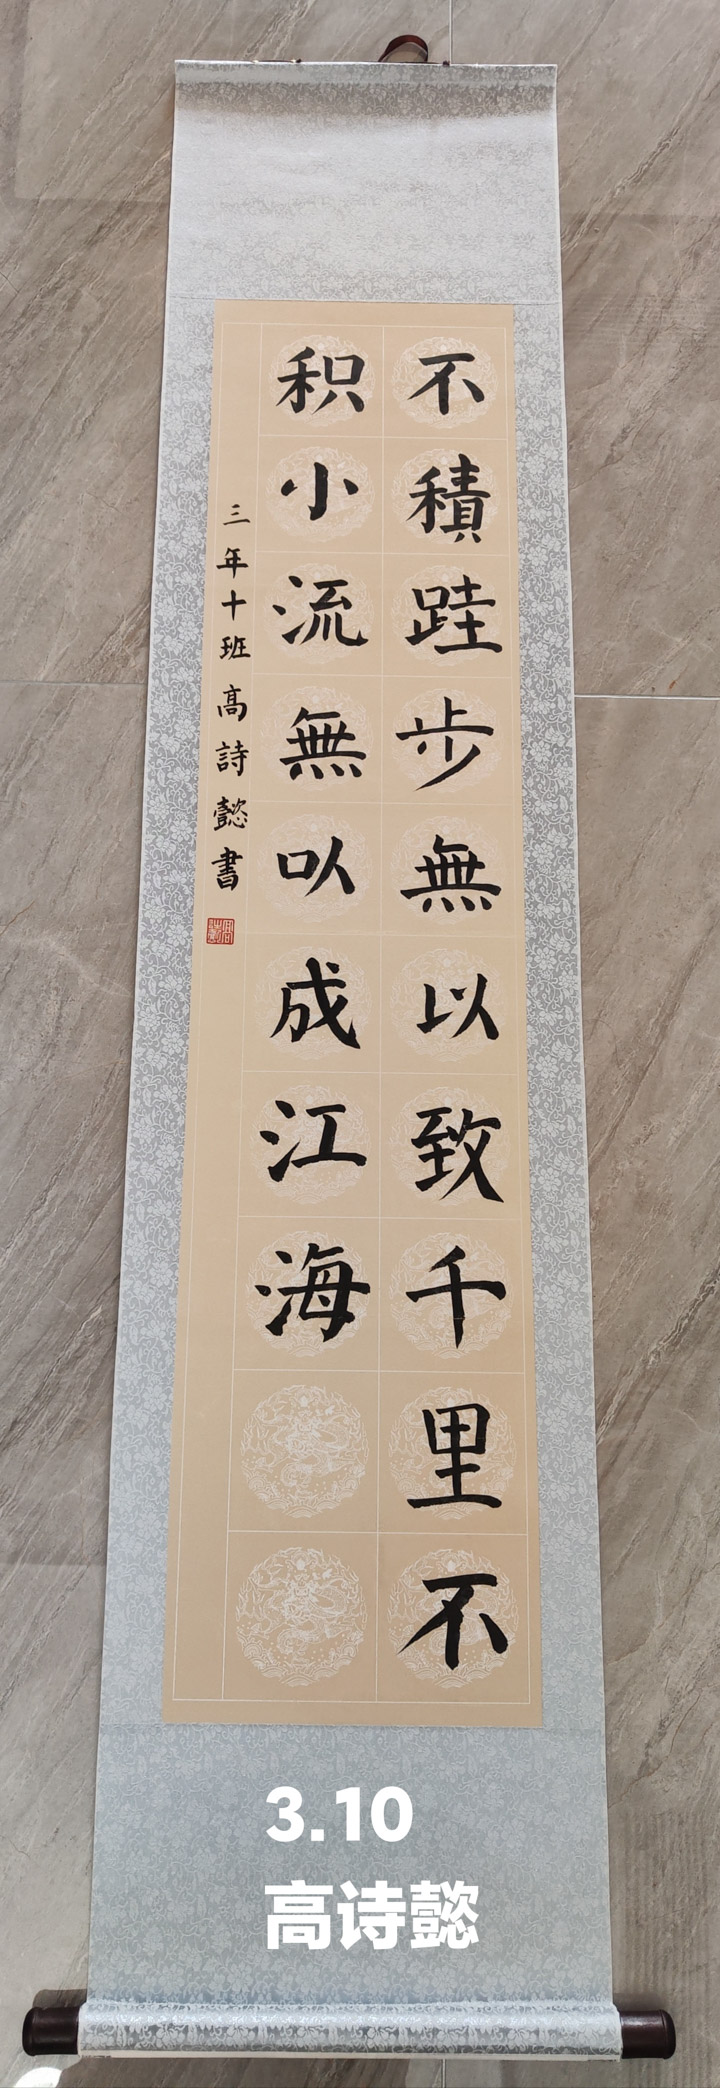 不積跬步無以致千里不
积小流無以成江海
三年十班高詩懿書
3.10
高诗懿